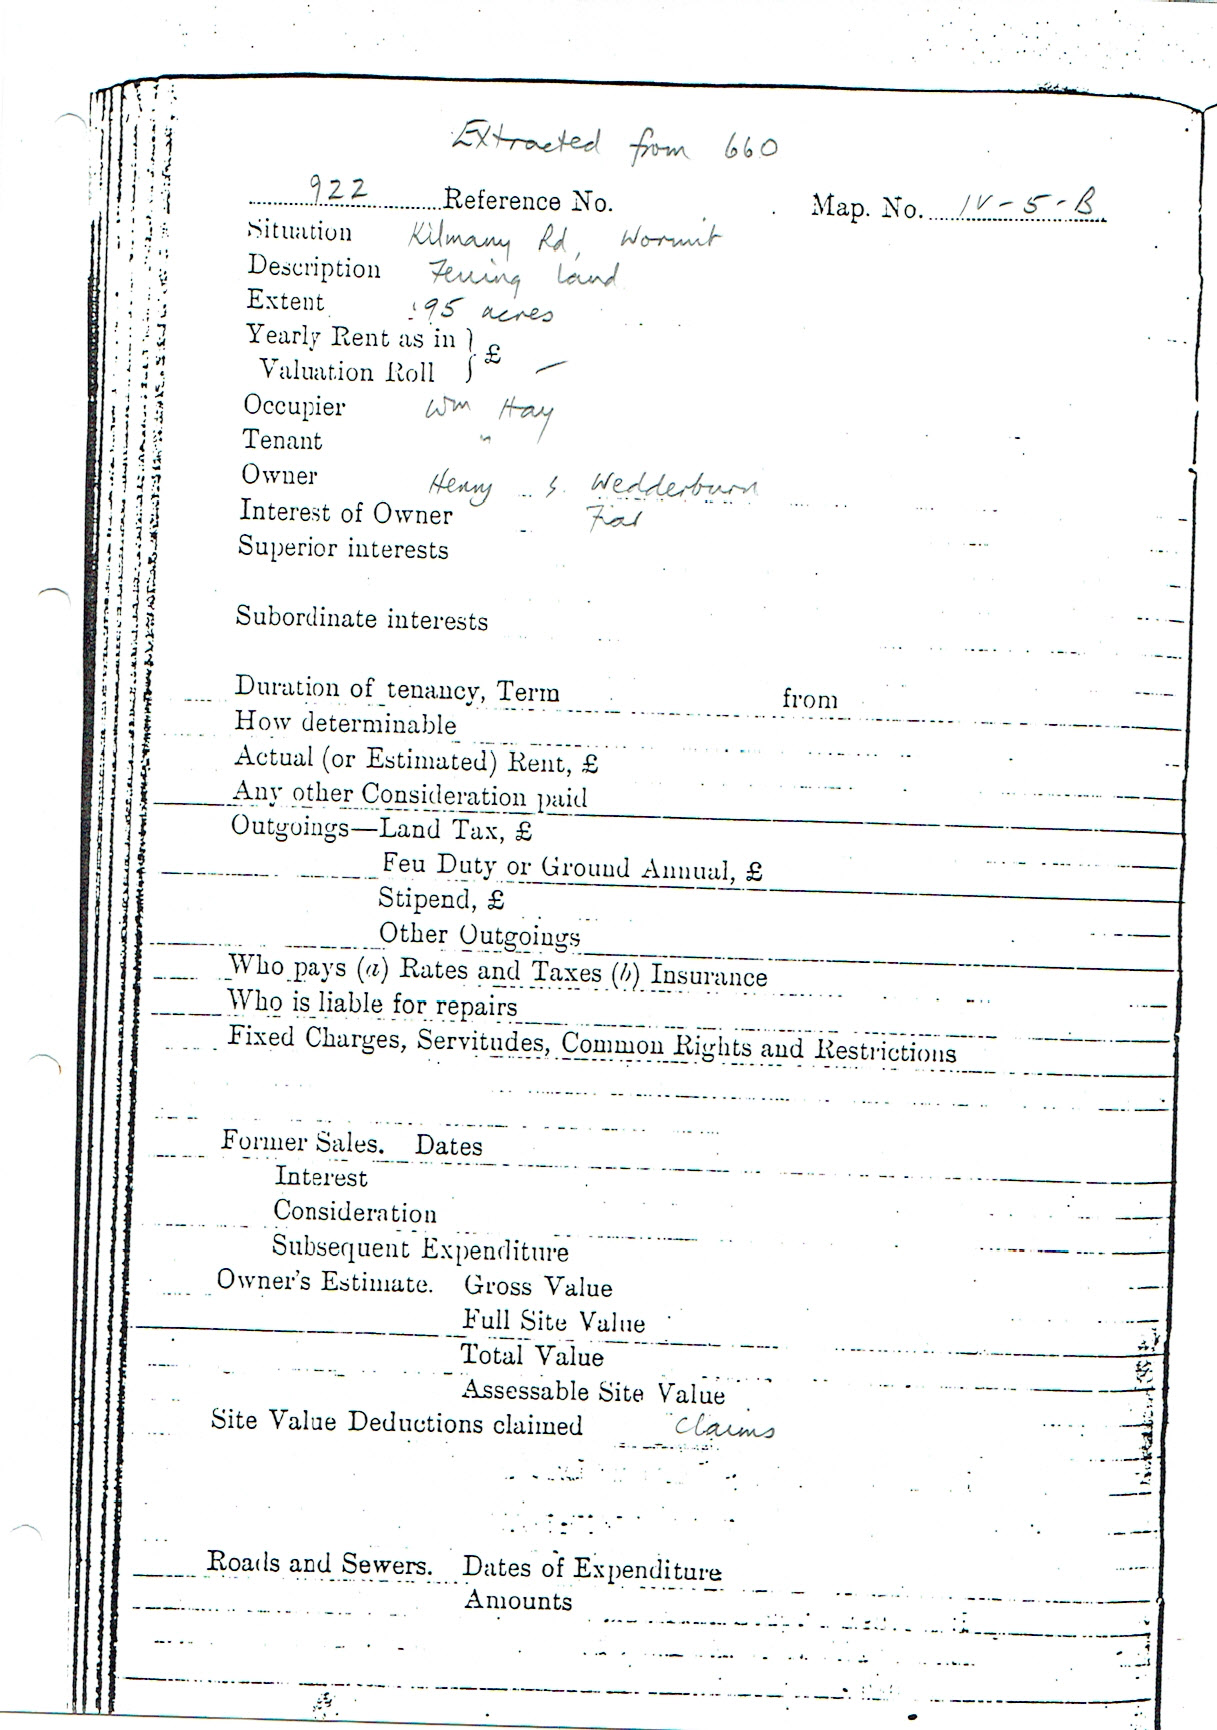 Extracted from 660
922 Reference No. Map. No. IV-5-B
Situation Kilmany Rd, Wormit
Description Feuing Land
Extent .95 acres
Yearly Rent as in } £ —
Valuation Roll
Occupier Wm Hay
Tenant "
Owner Henry S. Wedderburn
Interest of Owner Fiar
Superior interests
Subordinate interests
Duration of tenancy, Term from
How determinable
Actual (or Estimated) Rent, £
Any other Consideration paid
Outgoings—Land Tax, £
Feu Duty or Ground Annual, £
Stipend, £
Other Outgoings
Who pays (a) Rates and Taxes (b) Insurance
Who is liable for repairs
Fixed Charges, Servitudes, Common Rights and Restrictions
Former Sales. Dates
Interest
Consideration
Subsequent Expenditure
Owner's Estimate. Gross Value
Full Site Value
Total Value
Assessable Site Value
Site Value Deductions claimed Claims
Roads and Sewers. Dates of Expenditure
Amounts